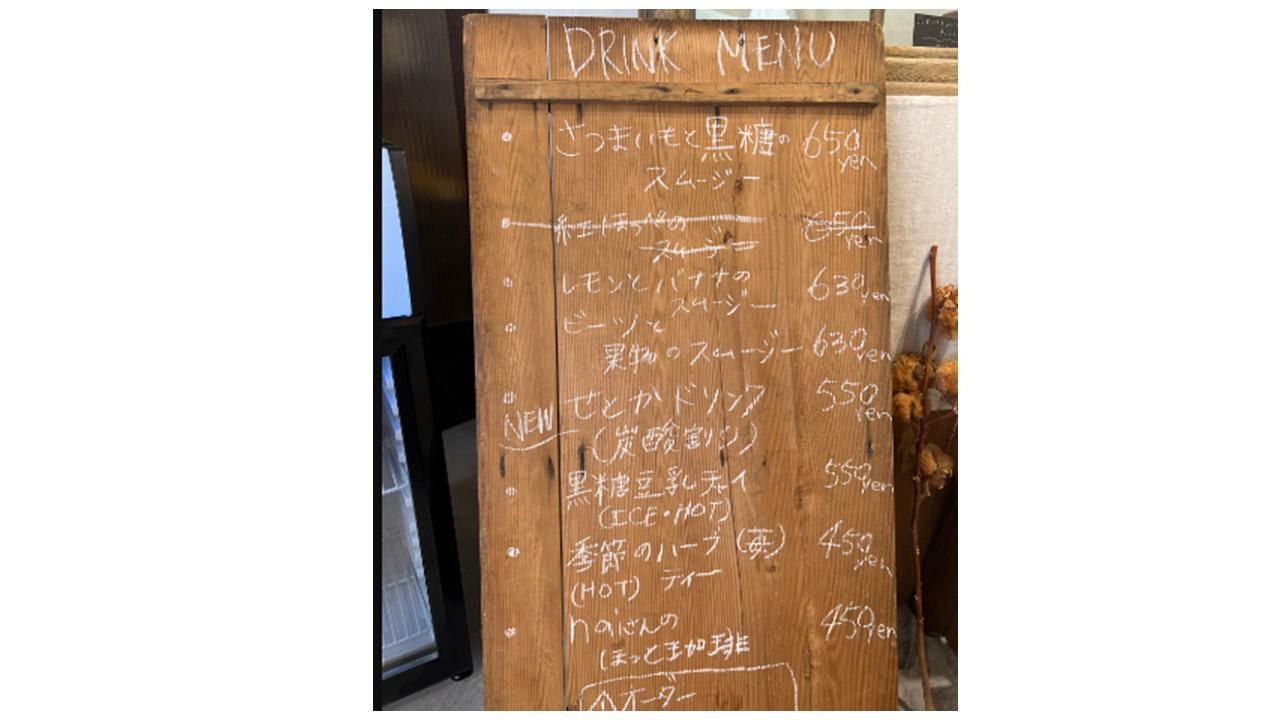 DRINK MENU
さつまいもと黒糖の 650yen
スムージー
紅ほっぺの 650yen
スムージー
レモンとバナナの 630yen
スムージー
ビーツと
果物のスムージー 630yen
せとかドリンク 550yen
NEW
(炭酸割り)
黒糖豆乳チャイ 550yen
(ICE・HOT)
季節のハーブ(苺) 450yen
(HOT) ティー
naiんの 450yen
ほっと珈琲
オーダー